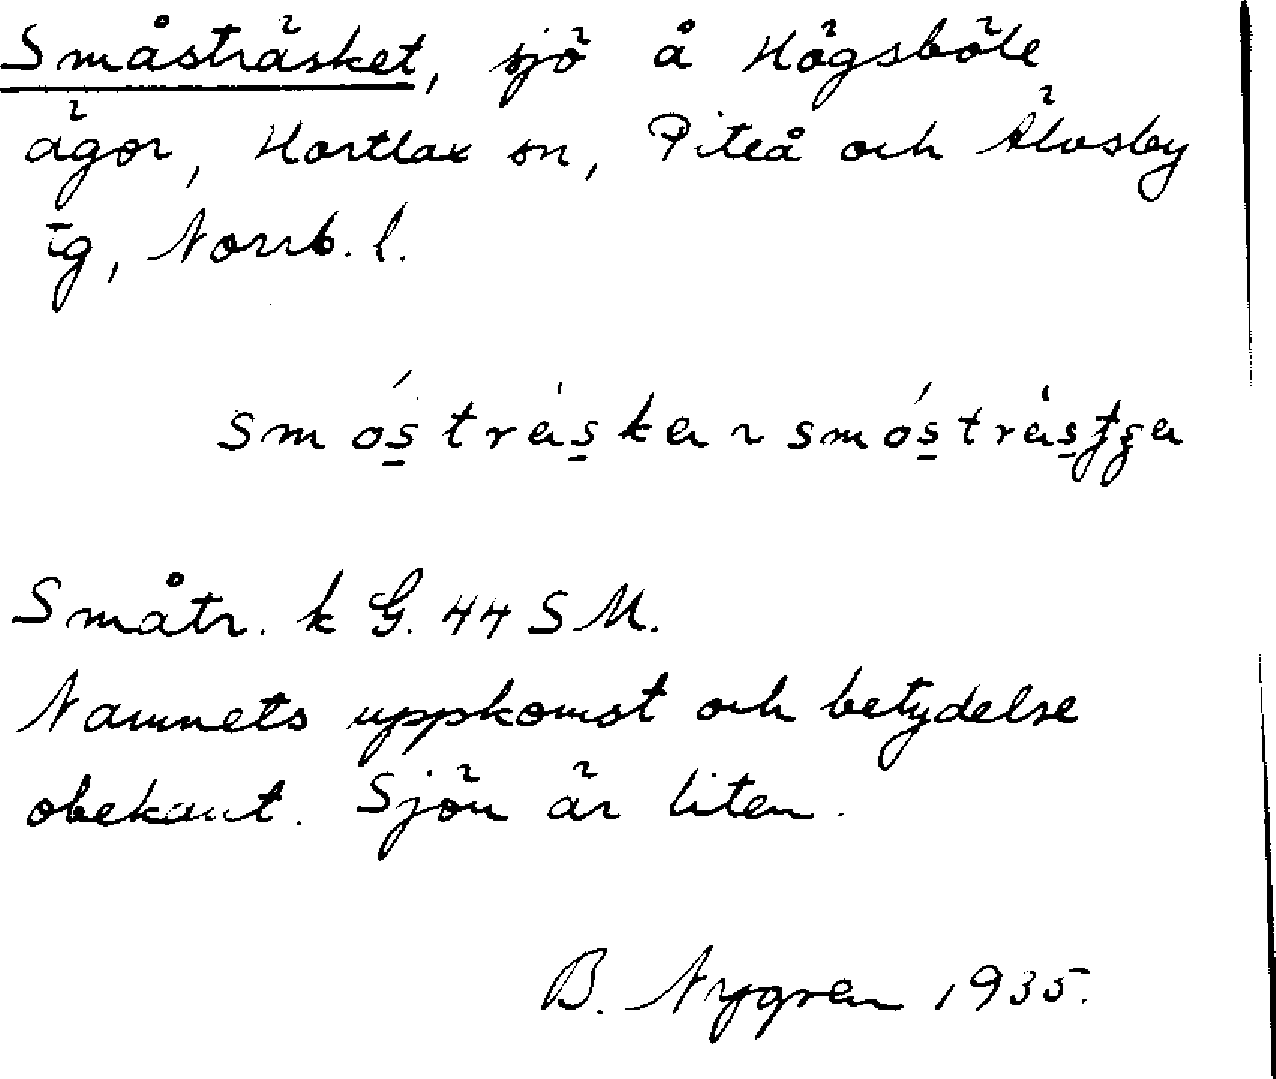 Småsträsket, sjö å Högsböle
ägor, Hortlax sn, Piteå och Älvsby
tg, Norrb. l.
Småtr. k G. 44 SM.
Namnets uppkomst och betydelse
obekant. Sjön är liten.
B. Nygren 1935.